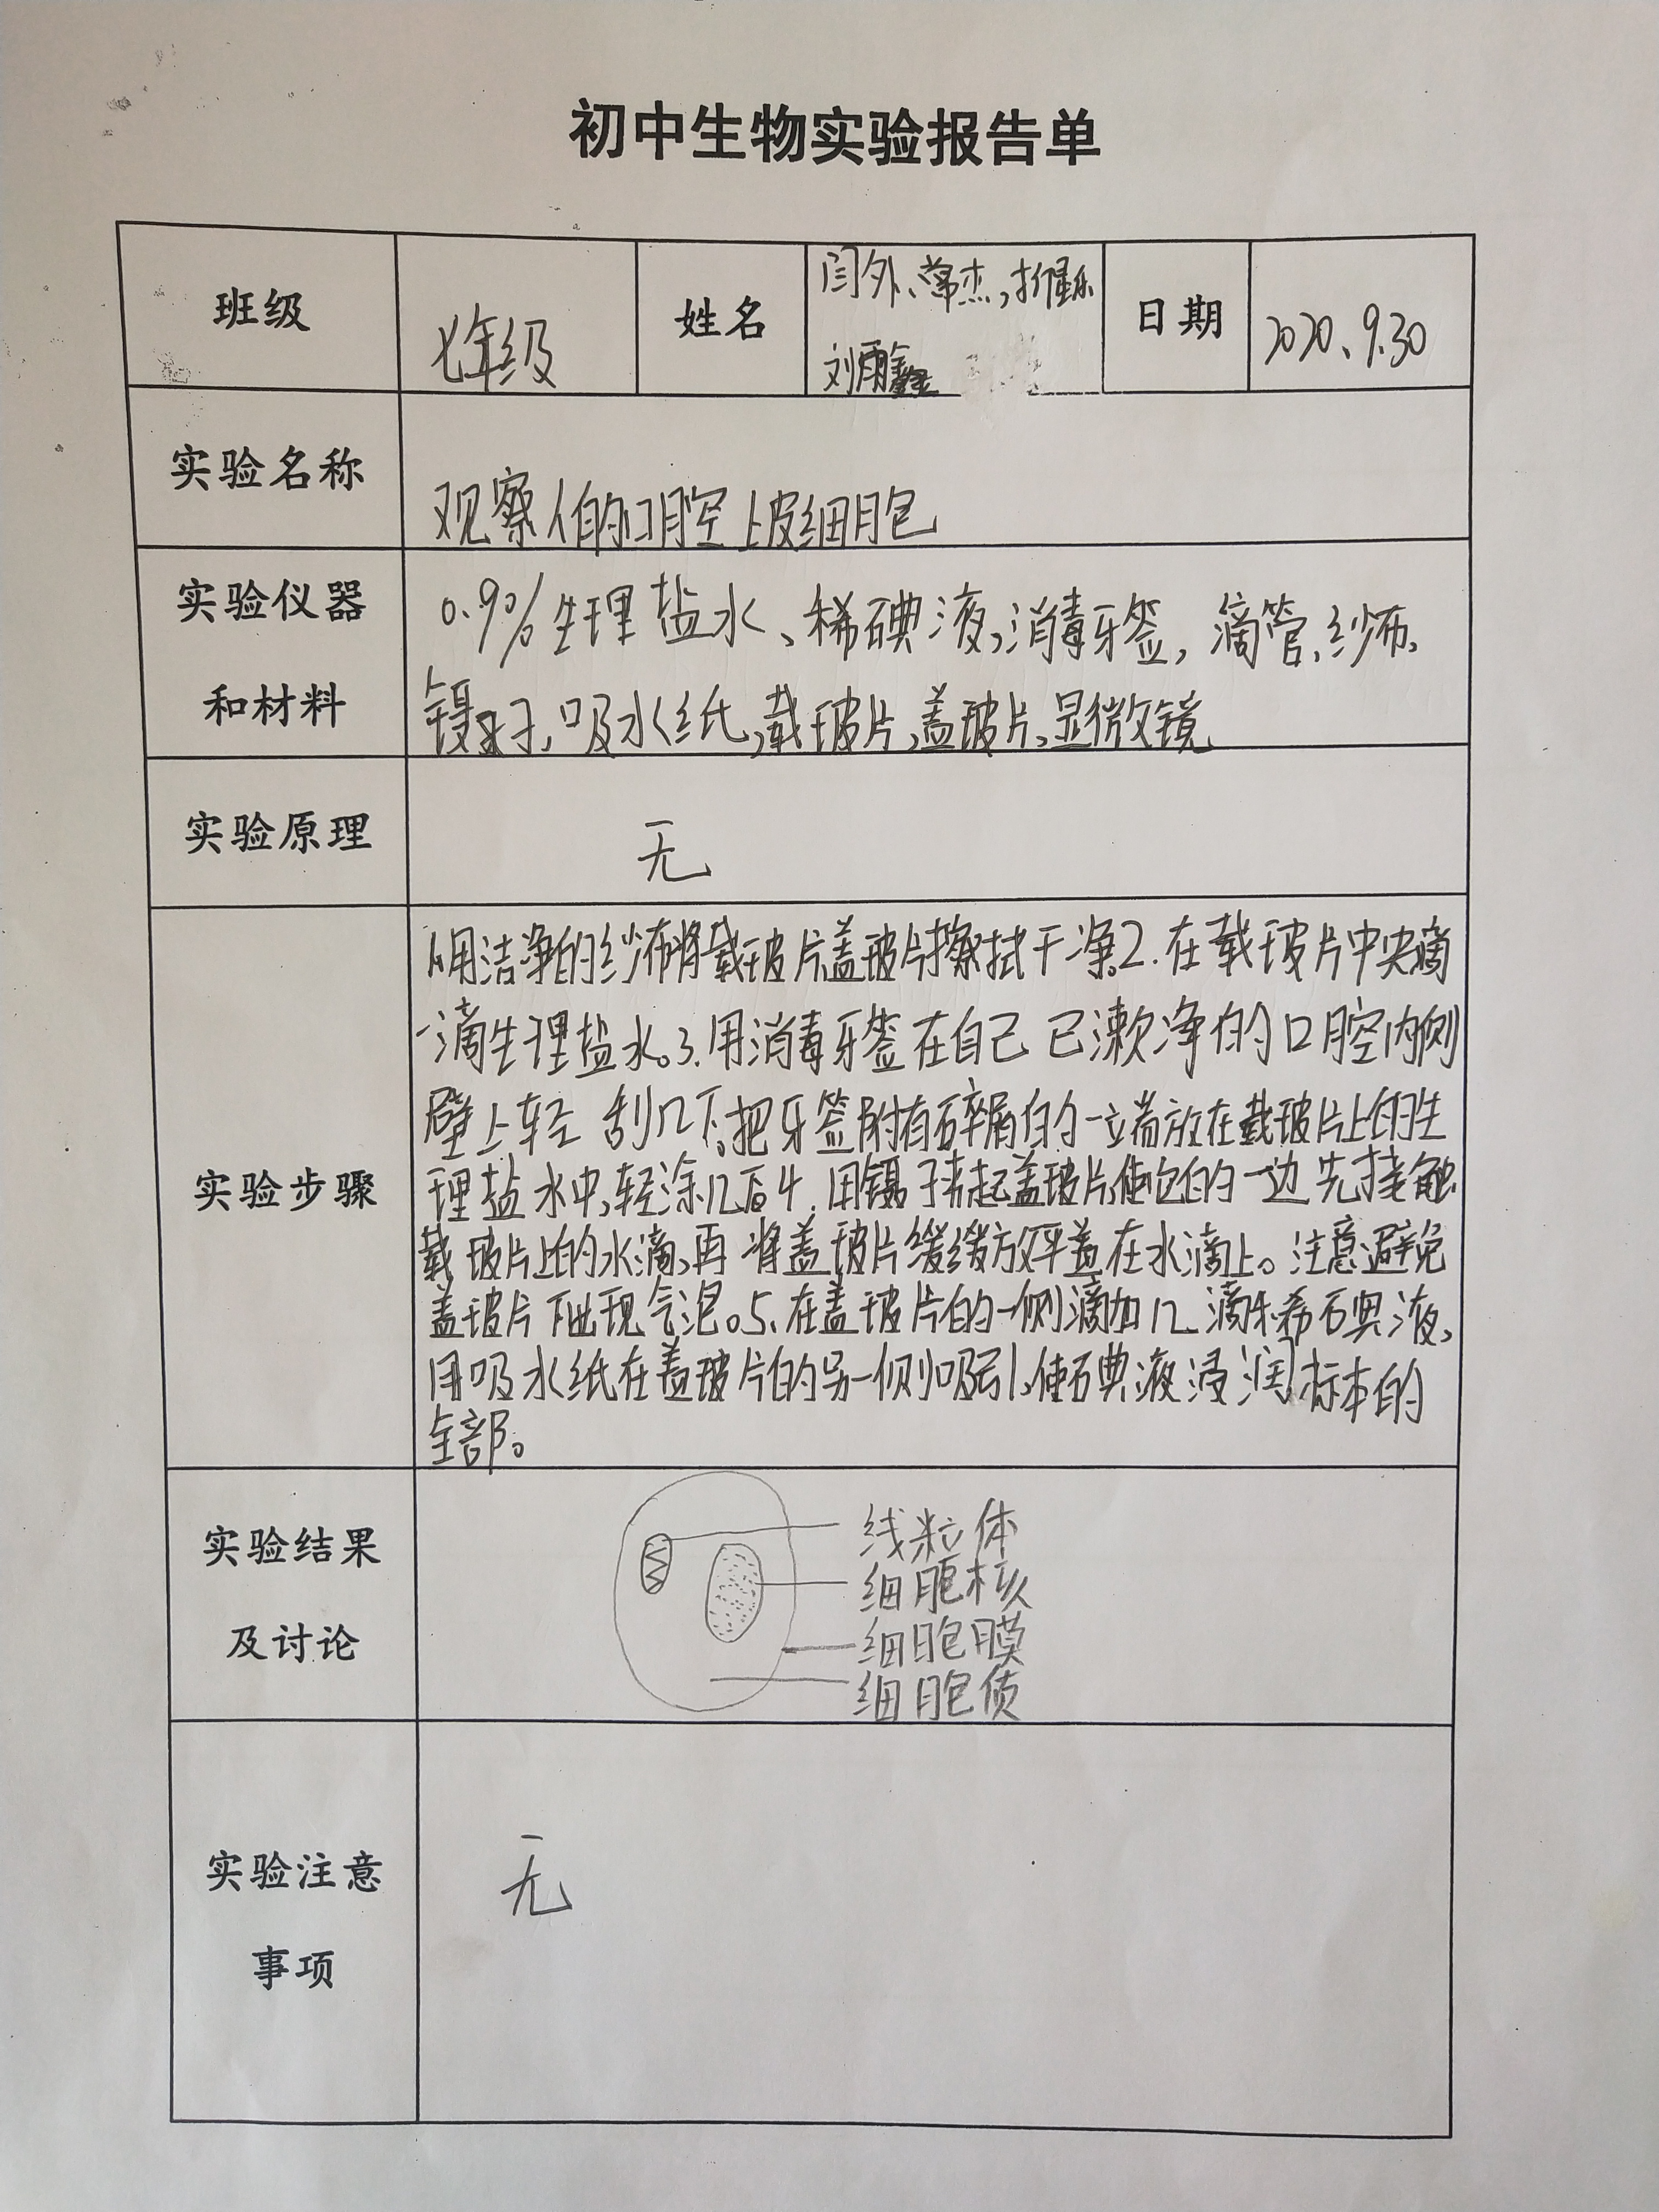 初中生物实验报告单
班级
七年级
姓名
闫外、常杰,
刘雨鑫
日期
2020、9.30
实验名称
观察人的口腔上皮细胞
实验仪器
和材料
0.9%生理盐水、稀碘液,消毒牙签,滴管、纱布、
镊子、吸水纸,载玻片,盖玻片、显微镜
实验原理
无
实验步骤
1.用洁净的纱布将载玻片、盖玻片擦拭干净。2.在载玻片中央滴
一滴生理盐水。3.用消毒牙签在自己已漱净的口腔内侧
壁上轻刮几下,把牙签附有碎屑的一端放在载玻片上的生
理盐水中,轻涂几后4.用镊子夹起盖玻片,使它的一边先接触
载玻片上的水滴,再将盖玻片缓缓放平盖在水滴上。注意避免
盖玻片下出现气泡。5、在盖玻片的一侧滴加几滴稀碘液,
用吸水纸在盖玻片的另一侧吸引,使碘液浸润标本的
全部。
实验结果
及讨论
线粒体
细胞核
细胞膜
细胞质
实验注意
事项
无